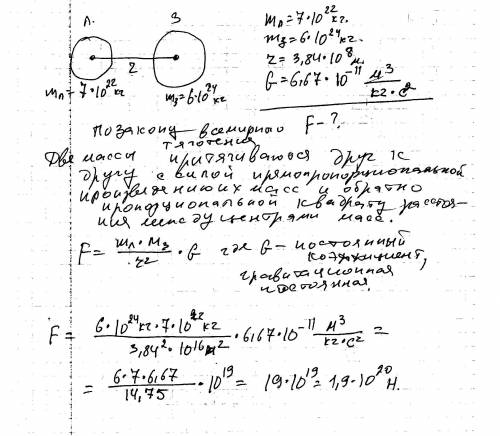 Л. З
2
mл=7·10²² кг
mз=6·10²⁴ кг
mл=7·10²² кг.
mз=6·10²⁴ кг.
r=3,84·10⁸ м
G=6,67·10⁻¹¹ м³/кг·с²
F-?
по закону всемирного
тяготения
Две массы притягиваются друг к
другу с силой прямопропорциональной
произведению их масс и обратно
пропорциональной квадрату расстоя-
ния между центрами масс.
F = mл·Mз/r² · G где G – постоянный
коэффициент,
гравитационная
постоянная.
F = 6·10²⁴ кг·7·10²² кг / 3,84²·10¹⁶ м² · 6,67·10⁻¹¹ м³/кг·с² =
= 6·7·6,67/14,75 · 10¹⁹ = 19·10¹⁹ = 1,9·10²⁰ Н.